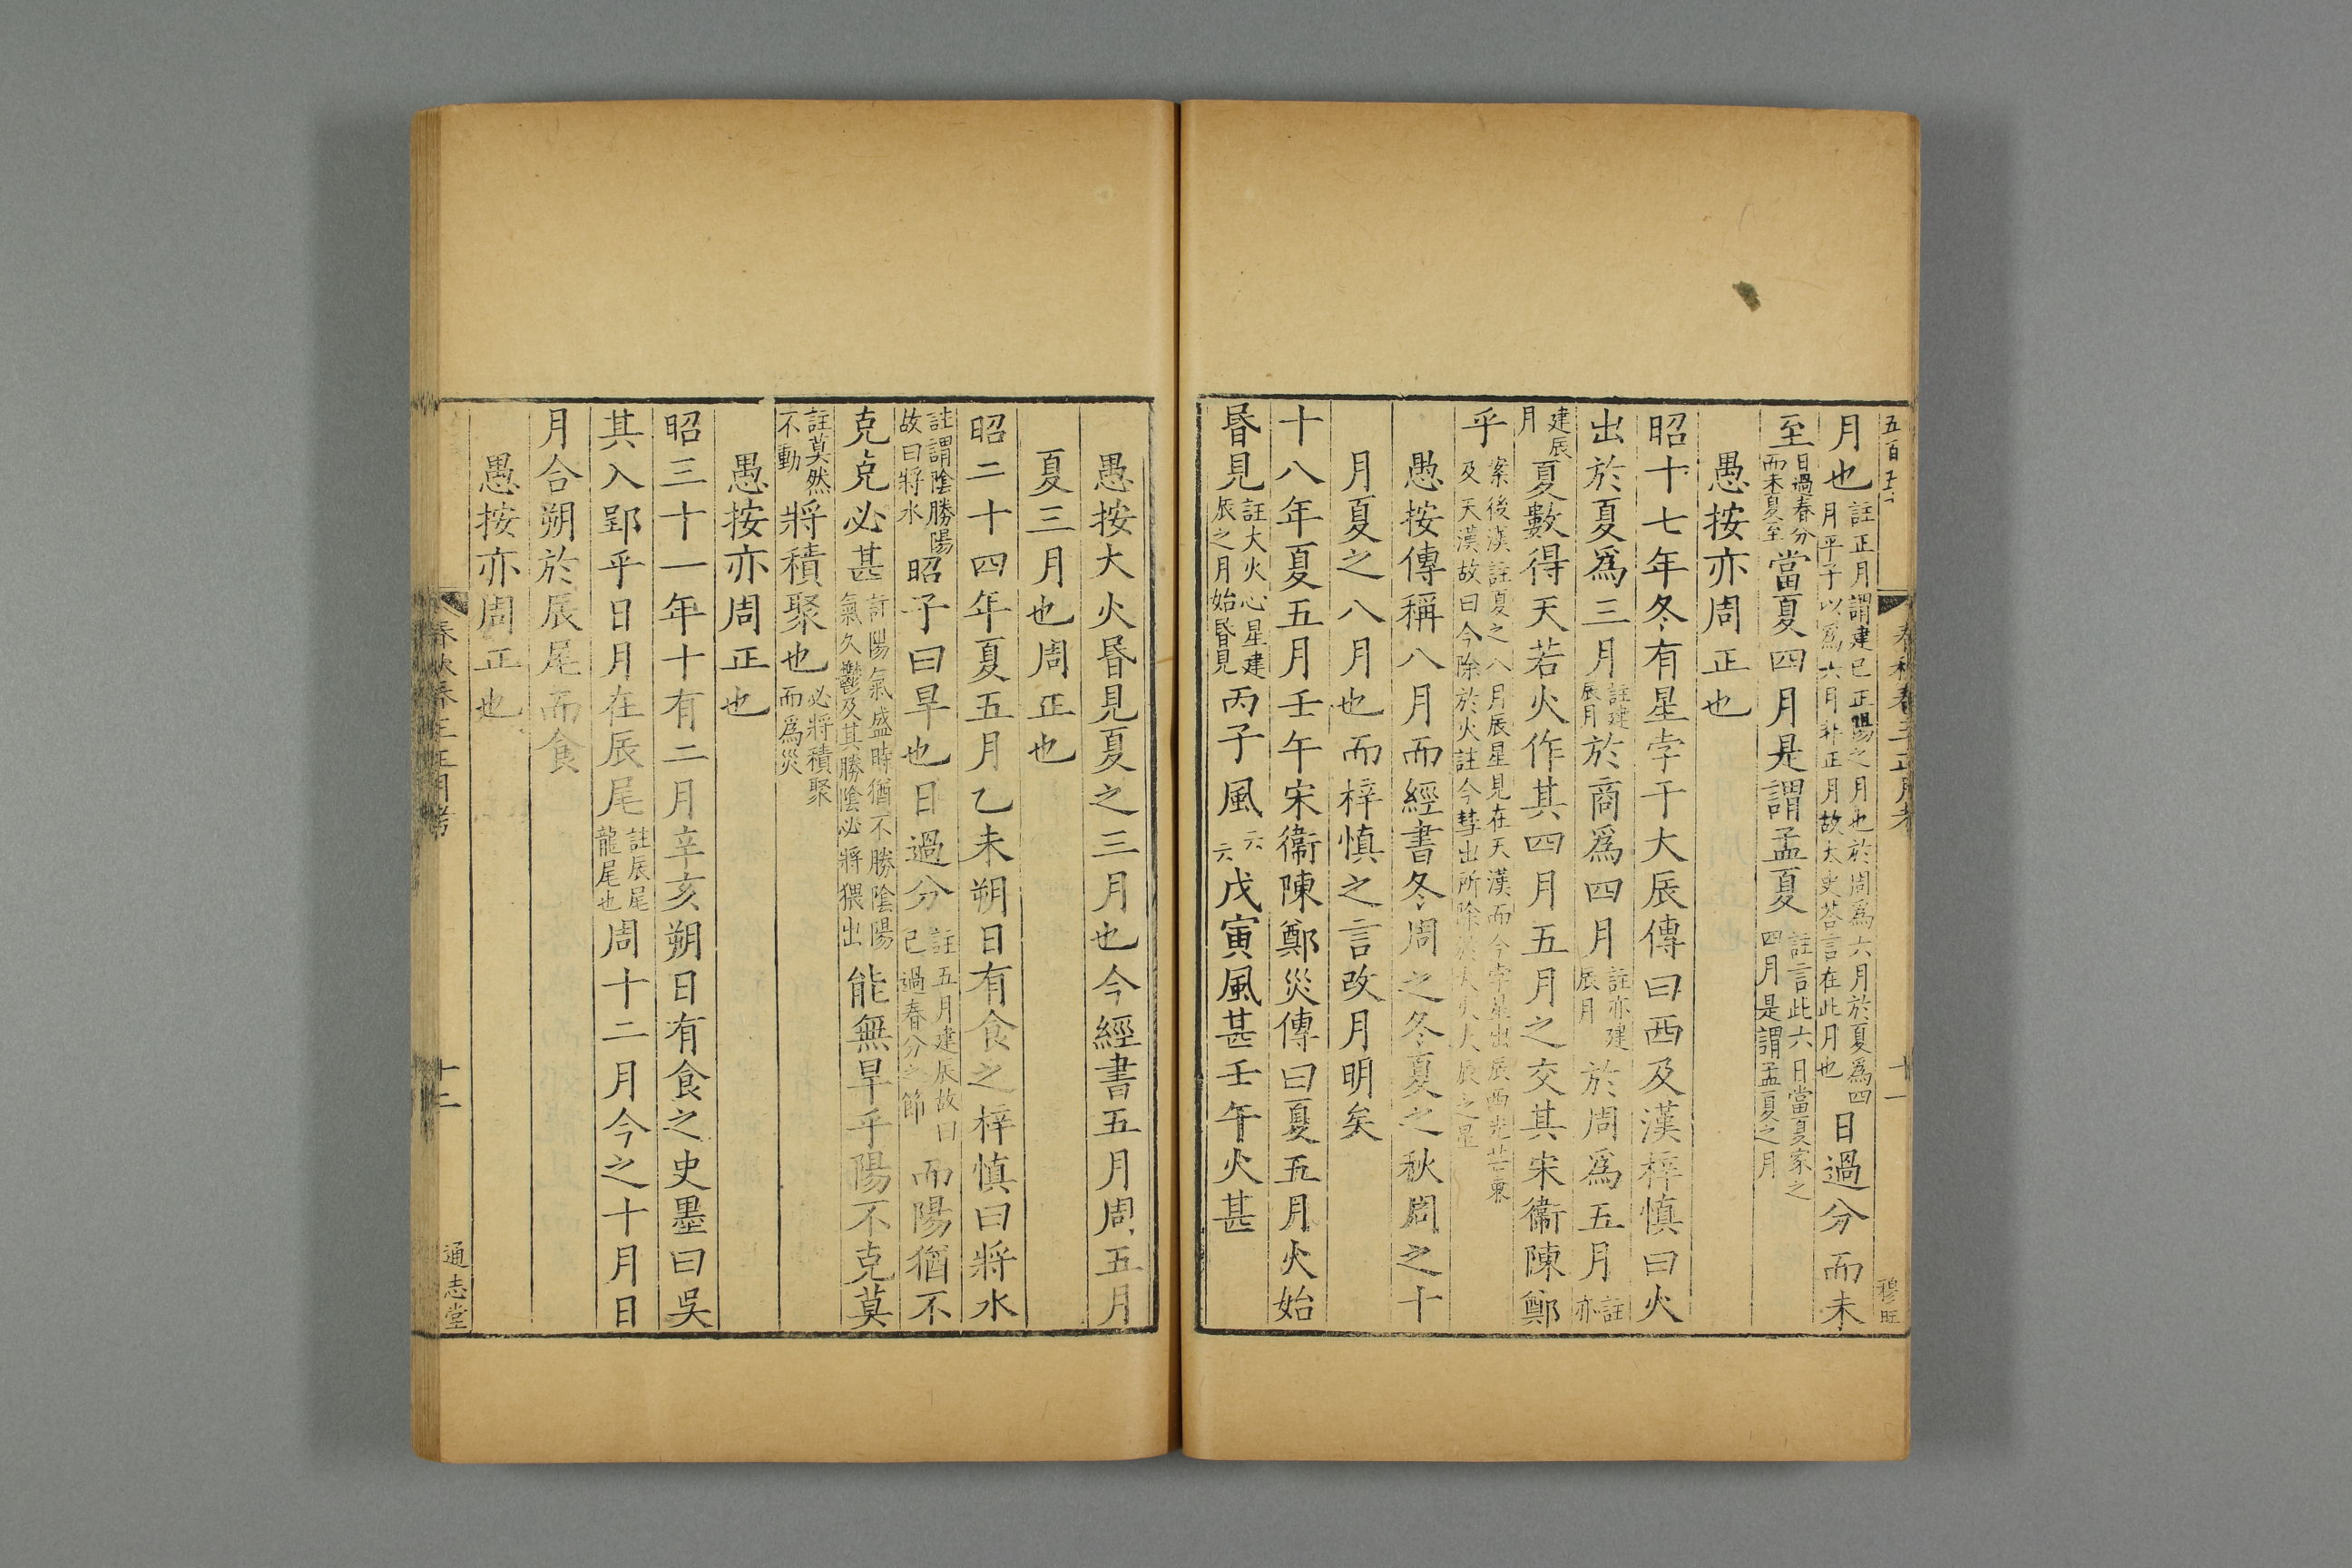 五百五六
春秋春王正月考
十一
穆旺
月也註正月謂建巳正陽之月也於周爲六月於夏爲四月平子以爲六月非正月故太史荅言在此月也日過分而未
至日過春分而未夏至當夏四月是謂孟夏註言此六月當夏家之四月是謂孟夏之月
愚按亦周正也
昭十七年冬有星孛于大辰傳曰西及漢梓慎曰火
出於夏爲三月註建辰月於商爲四月註亦建辰月於周爲五月註亦
建辰月夏數得天若火作其四月五月之交其宋衞陳鄭
乎案後漢註夏之八月辰星見在天漢而今孛星出辰西光芒東及天漢故曰今除於火註今彗出所除於大火大辰之星
愚按傳稱八月而經書冬周之冬夏之秋周之十
月夏之八月也而梓慎之言改月明矣
十八年夏五月壬午宋衞陳鄭災傳曰夏五月火始
昏見註大火心星建辰之月始昏見丙子風云云戊寅風甚壬午火甚
愚按大火昏見夏之三月也今經書五月周五月
夏三月也周正也
昭二十四年夏五月乙未朔日有食之梓慎曰將水
註謂陰勝陽故曰將水昭子曰旱也日過分註五月建辰故曰已過春分之節而陽猶不
克克必甚註陽氣盛時猶不勝陰陽氣久鬱及其勝陰必將猥出能無旱乎陽不克莫
註莫然不動將積聚也必將積聚而爲災
愚按亦周正也
昭三十一年十有二月辛亥朔日有食之史墨曰吳
其入郢乎日月在辰尾註辰尾龍尾也周十二月今之十月日
月合朔於辰尾而食
愚按亦周正也
春秋春王正月考
十二
通志堂